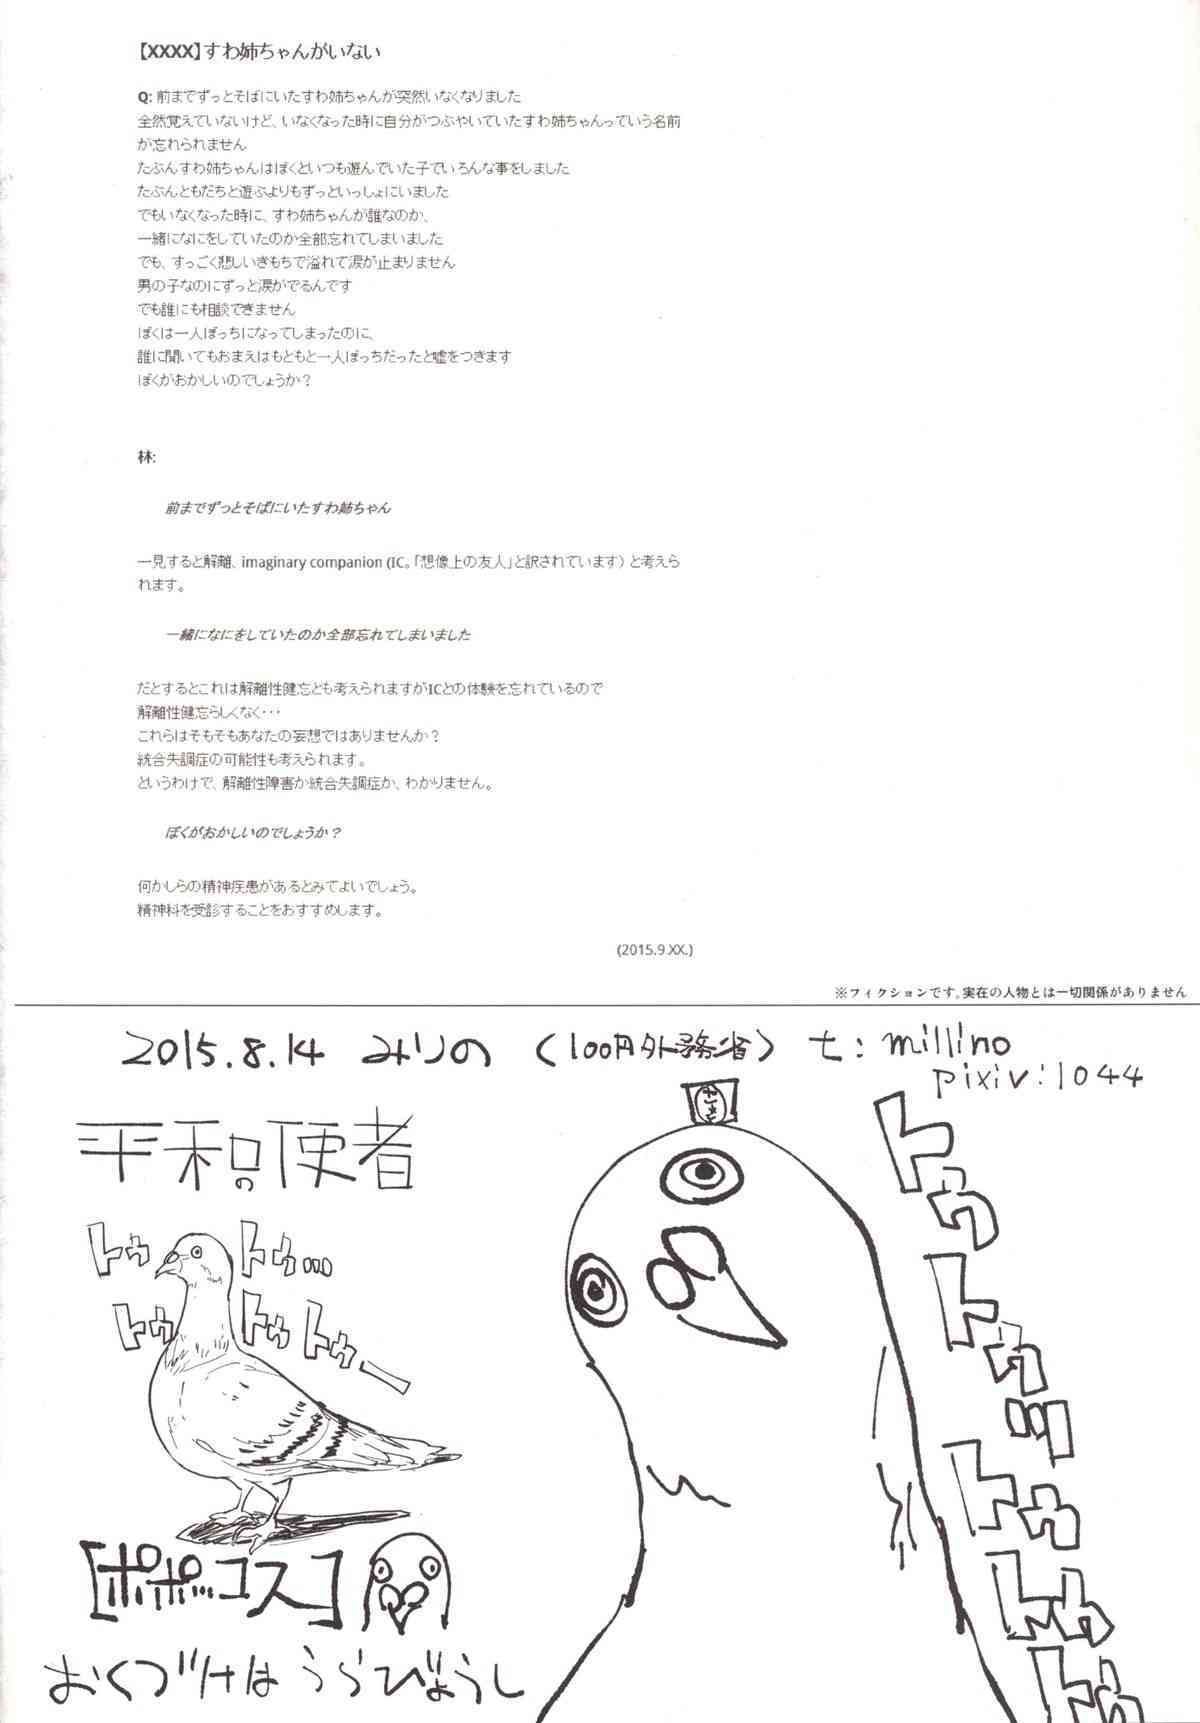 【XXXX】すわ姉ちゃんがいない
Q: 前までずっとそばにいたすわ姉ちゃんが突然いなくなりました
全然覚えていないけど、いなくなった時に自分がつぶやいていたすわ姉ちゃんっていう名前
が忘れられません
たぶんすわ姉ちゃんはぼくといつも遊んでいた子でいろんな事をしました
たぶんともだちと遊ぶよりもずっといっしょにいました
でもいなくなった時に、すわ姉ちゃんが誰なのか、
一緒になにをしていたのか全部忘れてしまいました
でも、すっごく悲しいきもちで溢れて涙が止まりません
男の子なのにずっと涙がでるんです
でも誰にも相談できません
ぼくは一人ぼっちになってしまったのに、
誰に聞いてもおまえはもともと一人ぼっちだったと嘘をつきます
ぼくがおかしいのでしょうか？
林:
前までずっとそばにいたすわ姉ちゃん
一見すると解離、imaginary companion (IC。「想像上の友人」と訳されています) と考えら
れます。
一緒になにをしていたのか全部忘れてしまいました
だとするとこれは解離性健忘とも考えられますがICとの体験を忘れているので
解離性健忘らしくなく・・・
これらはそもそもあなたの妄想ではありませんか？
統合失調症の可能性も考えられます。
というわけで、解離性障害か統合失調症か、わかりません。
ぼくがおかしいのでしょうか？
何かしらの精神疾患があるとみてよいでしょう。
精神科を受診することをおすすめします。
(2015.9.XX.)
※フィクションです。実在の人物とは一切関係がありません
2015.8.14 みりの 〈100円外務省〉 t: millino
pixiv:1044
平和の使者
トゥ トゥ…
トゥ トゥ トゥー
トゥ
トゥッ
トゥ
トゥ
トゥ
[ポポッコス]
おくづけはうらびょうし